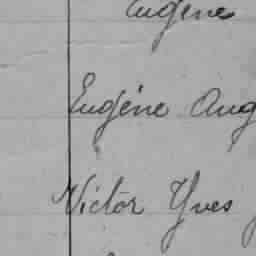 Eugène
Eugène Aug
Victor Yves